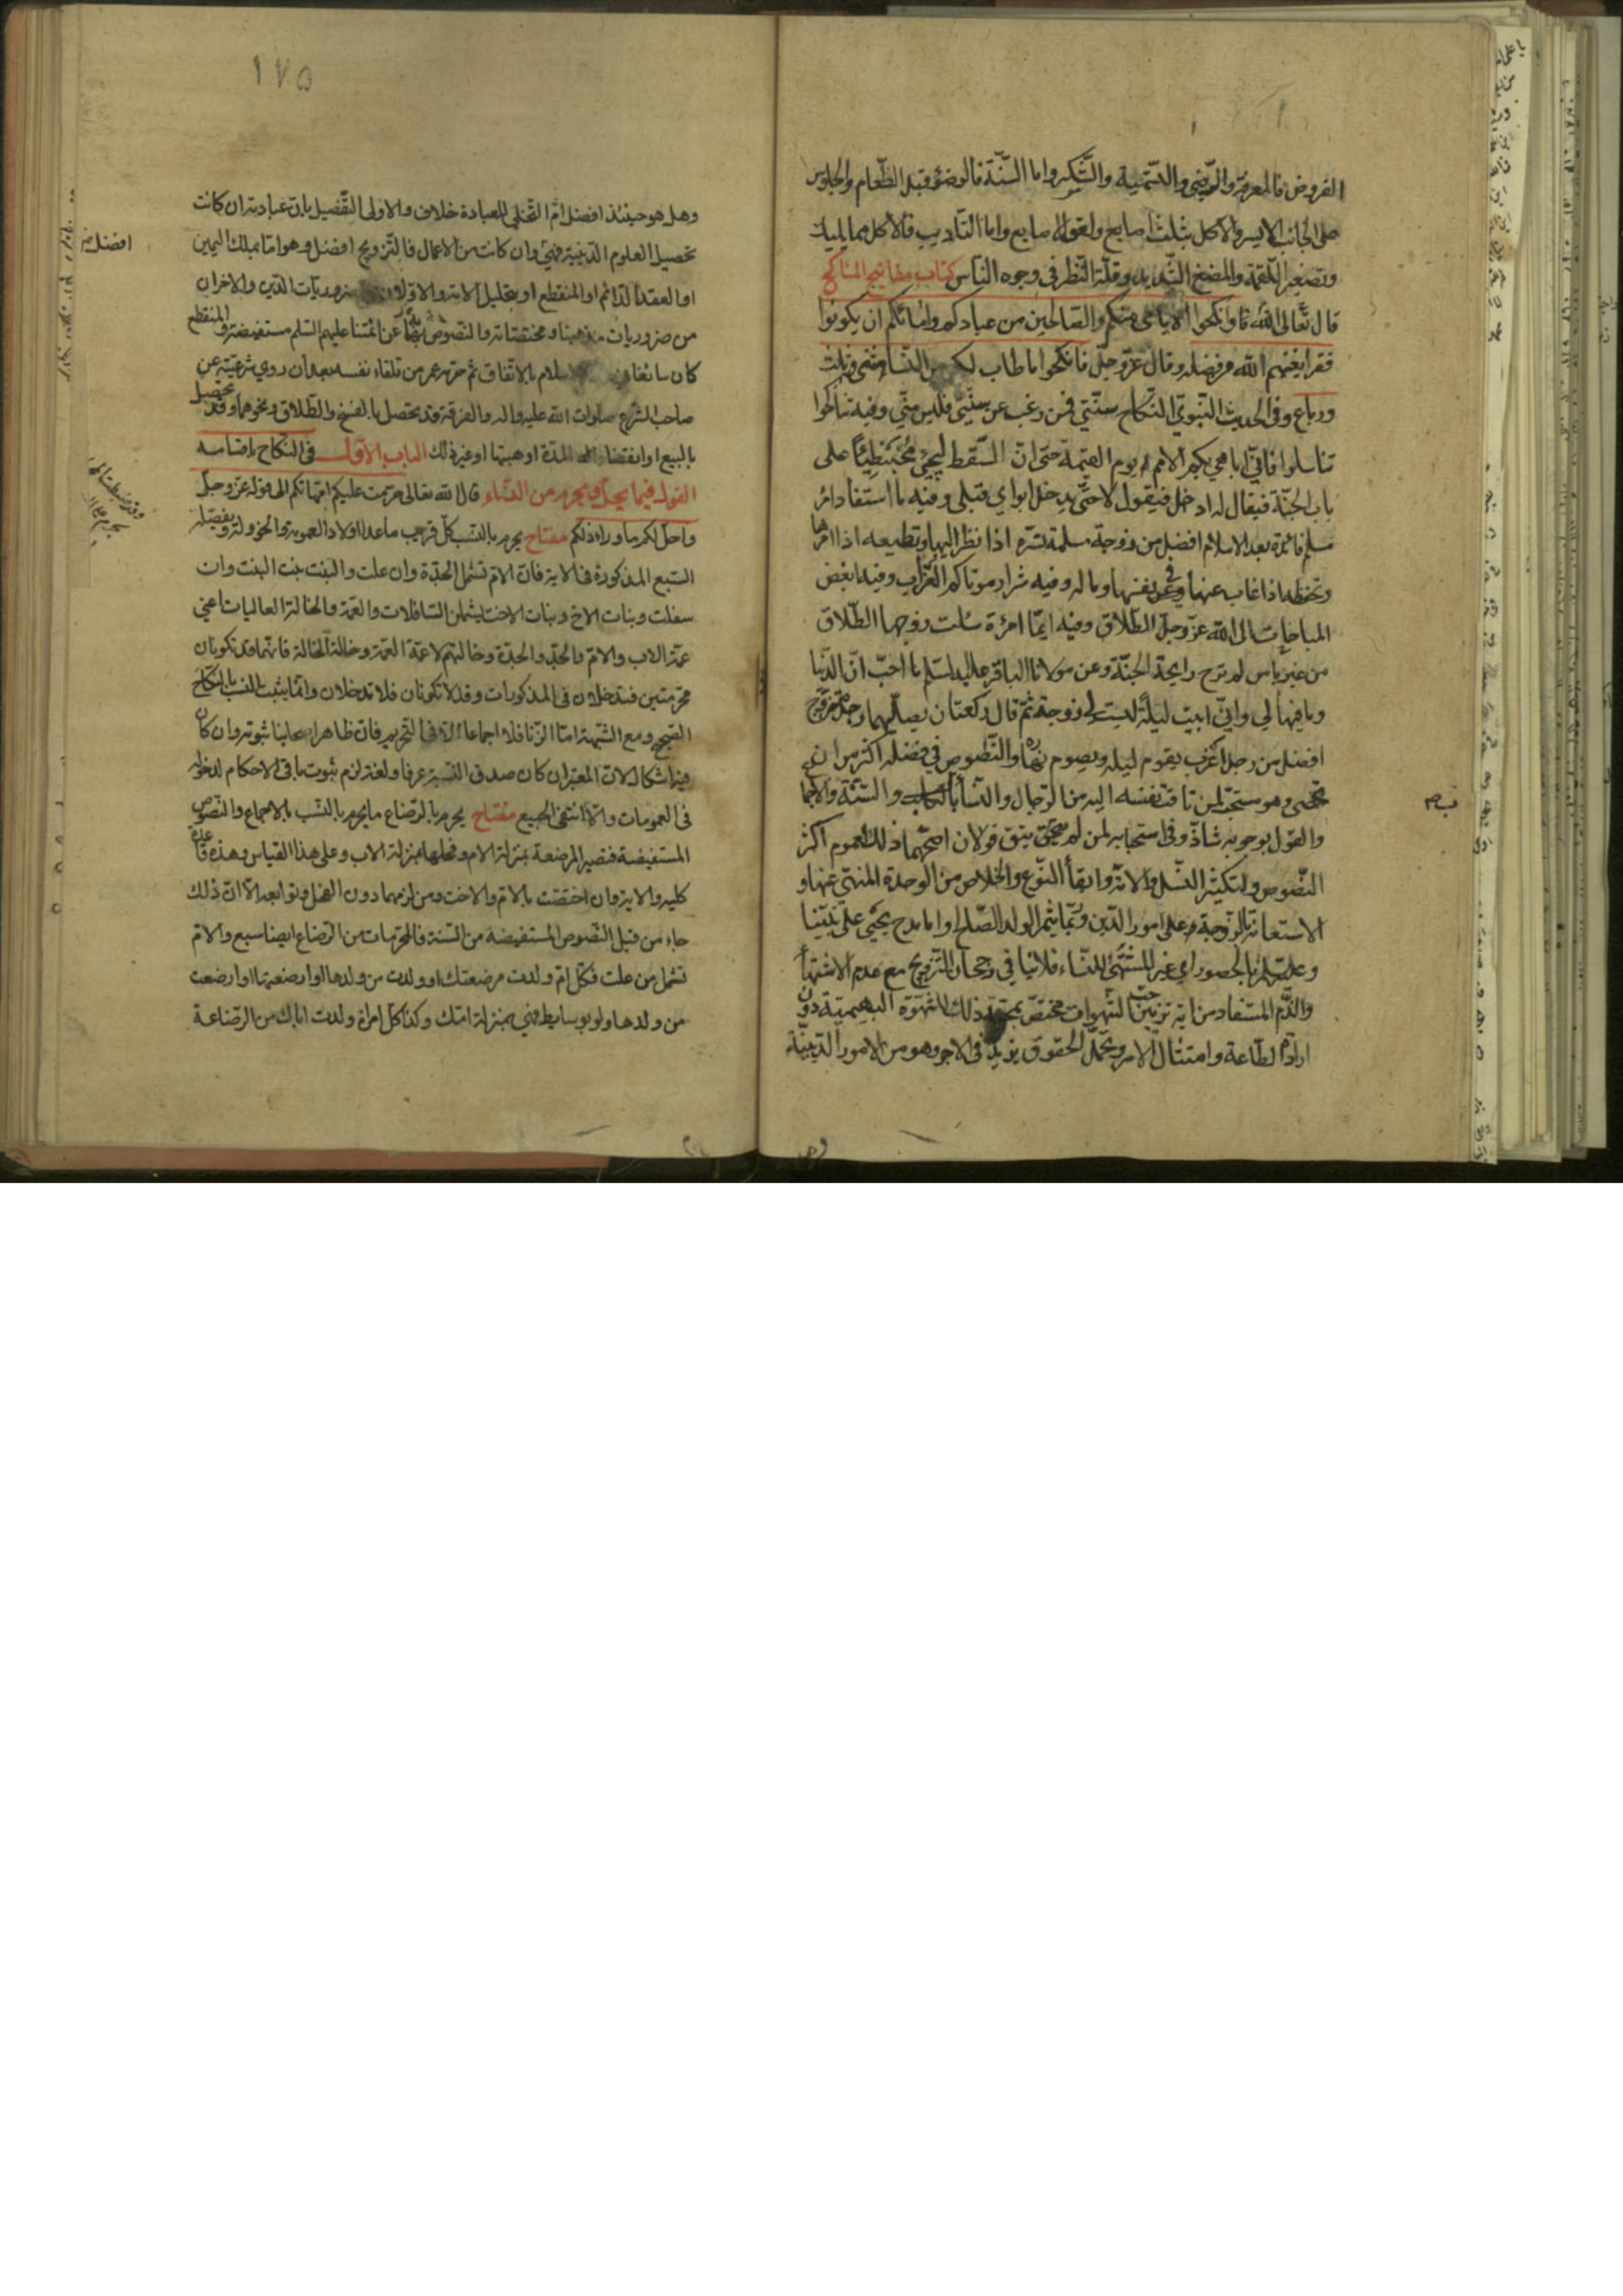 الفروض فالمعرفة والرضى والتسمية والشكر واما السنة فالوضوء قبل الطعام والجلوس
على الجانب الايسر والاكل بثلث اصابع ولعق الاصابع واما التاديب فالاكل مما يليك
وتصغير اللقمة والمضغ الشديد وقلة النظر في وجوه الناس كتاب مفاتيح المناكح
قال الله تعالى وانكحوا الايامى منكم والصالحين من عبادكم وامائكم ان يكونوا
فقراء يغنهم الله من فضله وقال عز وجل فانكحوا ما طاب لكم من النساء مثنى وثلث
ورباع وفى الحديث النبوي النكاح سنتي فمن رغب عن سنتي فليس مني وفيه تناكحوا
تناسلوا فاني اباهي بكم الامم يوم القيمة حتى ان السقط ليجيئ محبنطئا على
باب الجنة فيقال له ادخل فيقول لا حتى يدخل ابواي قبلي وفيه ما استفاد امرؤ
مسلم فائدة بعد الاسلام افضل من زوجة مسلمة تسره اذا نظر اليها وتطيعه اذا امرها
وتحفظه اذا غاب عنها في نفسها وماله وفيه شرار موتاكم العزاب وفيه ابغض
المباحات الى الله عز وجل الطلاق وفيه ايما امرءة سئلت زوجها الطلاق
من غير باس لم ترح رايحة الجنة وعن مولانا الباقر عليه السلم ما احب ان الدنيا
وما فيها لي واني ابيت ليلة ليست لي زوجة ثم قال ركعتان يصليهما رجل متزوج
افضل من رجل اعزب يقوم ليله ويصوم نهاره والنصوص في فضله اكثر من ان
تحصى وهو مستحب لمن تاقت نفسه اليه من الرجال والنساء بالكتاب والسنة والاجماع
والقول بوجوبه شاذ وفي استحبابه لمن لم يتق قولان اصحهما ذلك لعموم اكثر
النصوص ولتكثير النسل والامة وابقاء النوع والخلاص من الوحدة المنهي عنها و
الاستعانة بالزوجة على امور الدين وربما يثمر الولد الصالح واما مدح يحيى على نبينا
وعليه السلم بالحصور اي غير المشتهي للنساء فلا ينافي رجحان التزويج مع عدم الاشتهاء
والذم المستفاد من اية تزيين حب الشهوات مختص بمحبة ذلك للشهوة البهيمية دون
ارادة الطاعة وامتثال الامر وتحمل الحقوق يزيد في الاجر وهو من الامور الدينية
١٧٥
وهل هو حينئذ افضل ام التخلي للعبادة خلاف والاولى التفصيل بان عبادته ان كانت
تحصيل العلوم الدينية فهي وان كانت من الاعمال فالتزويج افضل وهو اما بملك اليمين
افضل
او العقد الدائم او المنقطع او بتحليل الامة والاولان من ضروريات الدين والاخران
من ضروريات مذهبنا ومختصاته والنصوص بهما عن ائمتنا عليهم السلم مستفيضة والمنقطع
كان سائغا في الاسلام بالاتفاق ثم حرمه عمر من تلقاء نفسه بعد ان روي شرعيته عن
صاحب الشرع صلوات الله عليه واله والفرقة قد يحتصل بالفسخ والطلاق ونحوهما وقد تحصيل
بالبيع او انقضاء المدة او هبتها او غير ذلك الباب الاول في النكاح باقسامه
القول فيما يحل ويحرم من النساء قال الله تعالى حرمت عليكم امهاتكم الى قوله عز وجل
واحل لكم ما وراء ذلكم مفتاح يحرم بالنسب كل قريب ما عدا اولاد العمومة والخؤلة وتفصيله
السبع المذكورة في الاية فان الام تشمل الجدة وان علت والبنت بنت البنت وان
سفلت وبنات الاخ وبنات الاخت يشملن السافلات والعمة والخالة العاليات اعني
عمة الاب والام والجد والجدة وخالتهم لا عمة العمة وخالة الخالة فانهما قد تكونان
محرمتين فتدخلان في المذكورات وقد لا تكونان فلا تدخلان وانما يثبت النسب بالنكاح
الصحيح ومع الشبهة اما الزنا فلا اجماعا الا في التحريم فان ظاهر اصحابنا ثبوته وان كان
فيه اشكال لان المعتبر ان كان صدق النسبة عرفا ولغة لزم ثبوت باقي الاحكام لدخوله
في العمومات والا انتفى الجميع مفتاح يحرم بالرضاع ما يحرم بالنسب بالاجماع والنصوص
المستفيضة فتصير المرضعة بمنزلة الام وفحلها بمنزلة الاب وعلى هذا القياس وهذه قاعدة
كلية والاية وان اختصت بالام والاخت ومن لزمهما دون الفحل وتوابعه الا ان ذلك
جاء من قبل النصوص المستفيضة من السنة فالمحرمات من الرضاع ايضا سبع والام
تشمل من علت فكل ام ولدت مرضعتك او ولدت من ولدها او ارضعتها او ارضعت
من ولدها ولو بوسايط فهي بمنزلة امك وكذا كل امراة ولدت اباك من الرضاعة